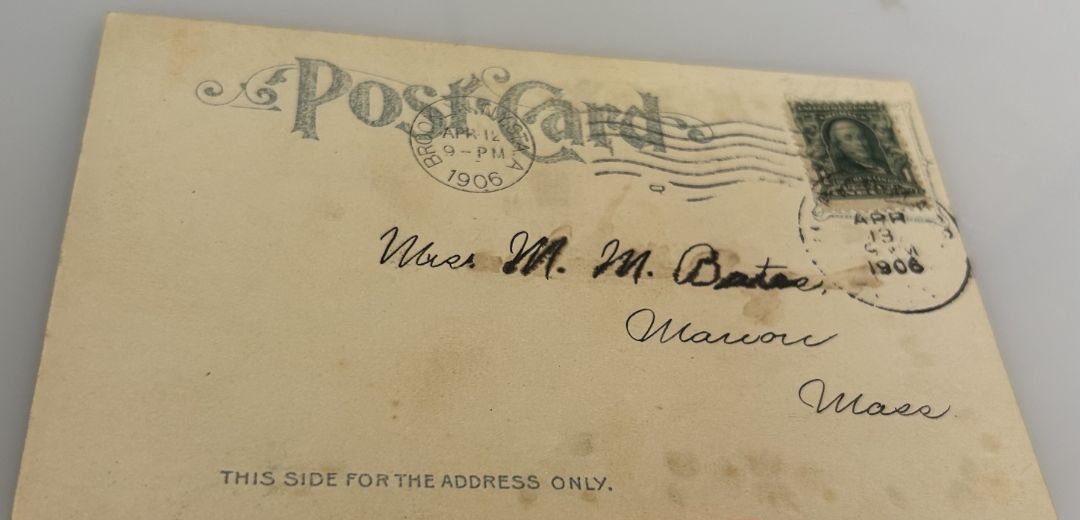 Post Card
BROOKLYN, N.Y. STA. A
APR 12
9-PM
1906
APR
13
1906
Miss. M. M. Bates,
Marion
Mass.
THIS SIDE FOR THE ADDRESS ONLY.